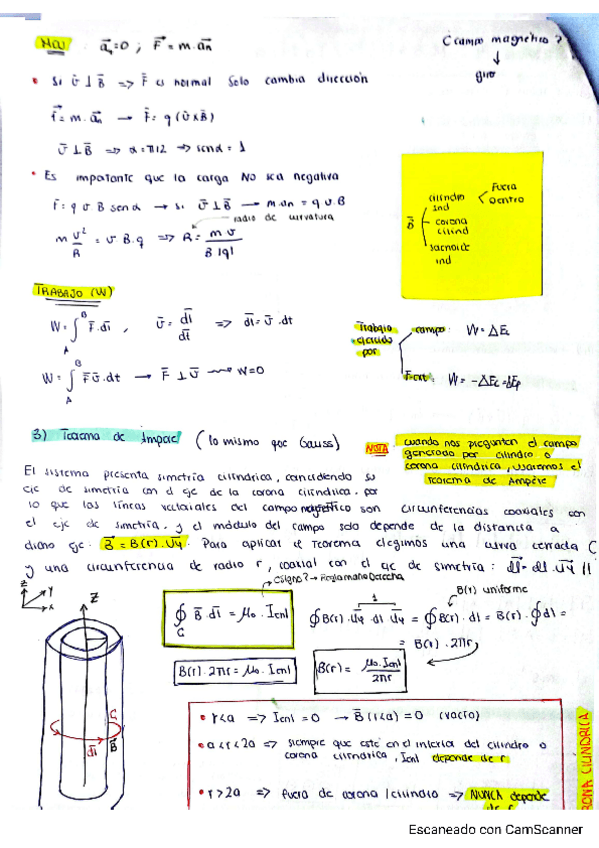 MCU : a⃗ₜ=0 ; F⃗ = m·a⃗n
¿campo magnético?
↓
giro
• Si v̄ ⊥ B̄ => F̄ es normal Solo cambia dirección
f⃗ = m·a⃗n → F̄ = q (v̄ x B̄)
v̄ ⊥ B̄ => α = π/2 => senα = 1
• Es importante que la carga NO sea negativa
F = q v B senα → si v̄ ⊥ B̄ → m·an = q v·B
radio de curvatura
m v²/R = v B·q => R = m v / B|q|
B̄
cilindro ind
Fuera
Dentro
corona cilind
ind
TRABAJO (W)
W = ∫_A^B F̄·dl̄ , v̄ = dl̄/dt => dl̄ = v̄·dt
W = ∫_A^B F̄v̄·dt → F̄ ⊥ v̄ → W=0
Trabajo ejercido por
campo: W = ΔEc
F.ext: W = -ΔEc = ΔEp
3) Teorema de Ampere (lo mismo que Gauss)
NOTA: cuando nos preguntan el campo
generado por cilindro o
corona cilíndrica, usaremos el
Teorema de Ampère
El sistema presenta simetría cilíndrica, coincidiendo su
eje de simetría con el eje de la corona cilíndrica. por
lo que las líneas vectoriales del campo magnético son circunferencias coaxiales con
el eje de simetría, y el módulo del campo solo depende de la distancia a
dicho eje: B⃗ = B(r)·u⃗φ. Para aplicar el Teorema elegimos una curva cerrada C
y una circunferencia de radio r, coaxial con el eje de simetría: dl⃗ = dl·u⃗φ //
¿Signo? → Regla mano Derecha
B(r) uniforme
∮_C B̄·dl̄ = μ₀·Icnl
∮ B(r)·u⃗φ dl u⃗φ = ∮ B(r)·dl = B(r)·∮ dl =
1
= B(r)·2πr
B(r)·2πr = μ₀·Icnl
B(r) = μ₀·Icnl / 2πr
z
Y
x
Z
C
dl̄
B̄
• r<a => Icnl = 0 → B̄(r<a) = 0 (vacío)
• a<r<2a => siempre que esté en el interior del cilindro o
corona cilíndrica, Icnl depende de r
• r>2a => fuera de corona/cilindro => NUNCA depende
de r
CORONA CILINDRICA
Escaneado con CamScanner